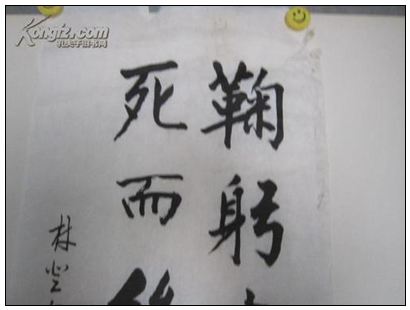 Kongfz.com
孔夫子旧书网
鞠躬
死而
林